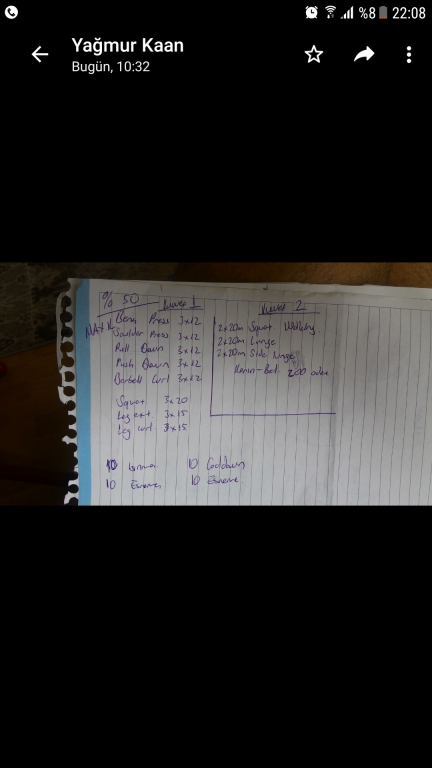 %8 22:08
Yağmur Kaan
Bugün, 10:32
% 50
Kuvvet 1
Bench Press 3x12
Shoulder Press 3x12
Pull Down 3x12
Push Down 3x12
Barbell Curl 3x12
Squat 3x20
Leg ext 3x15
Leg curl 3x15
10 Isınma
10 Esneme
Kuvvet 2
2x20m Squat Walking
2x20m Lunge
2x20m Side Lunge
Karın-Bel 200 adet
10 Cooldown
10 Esneme